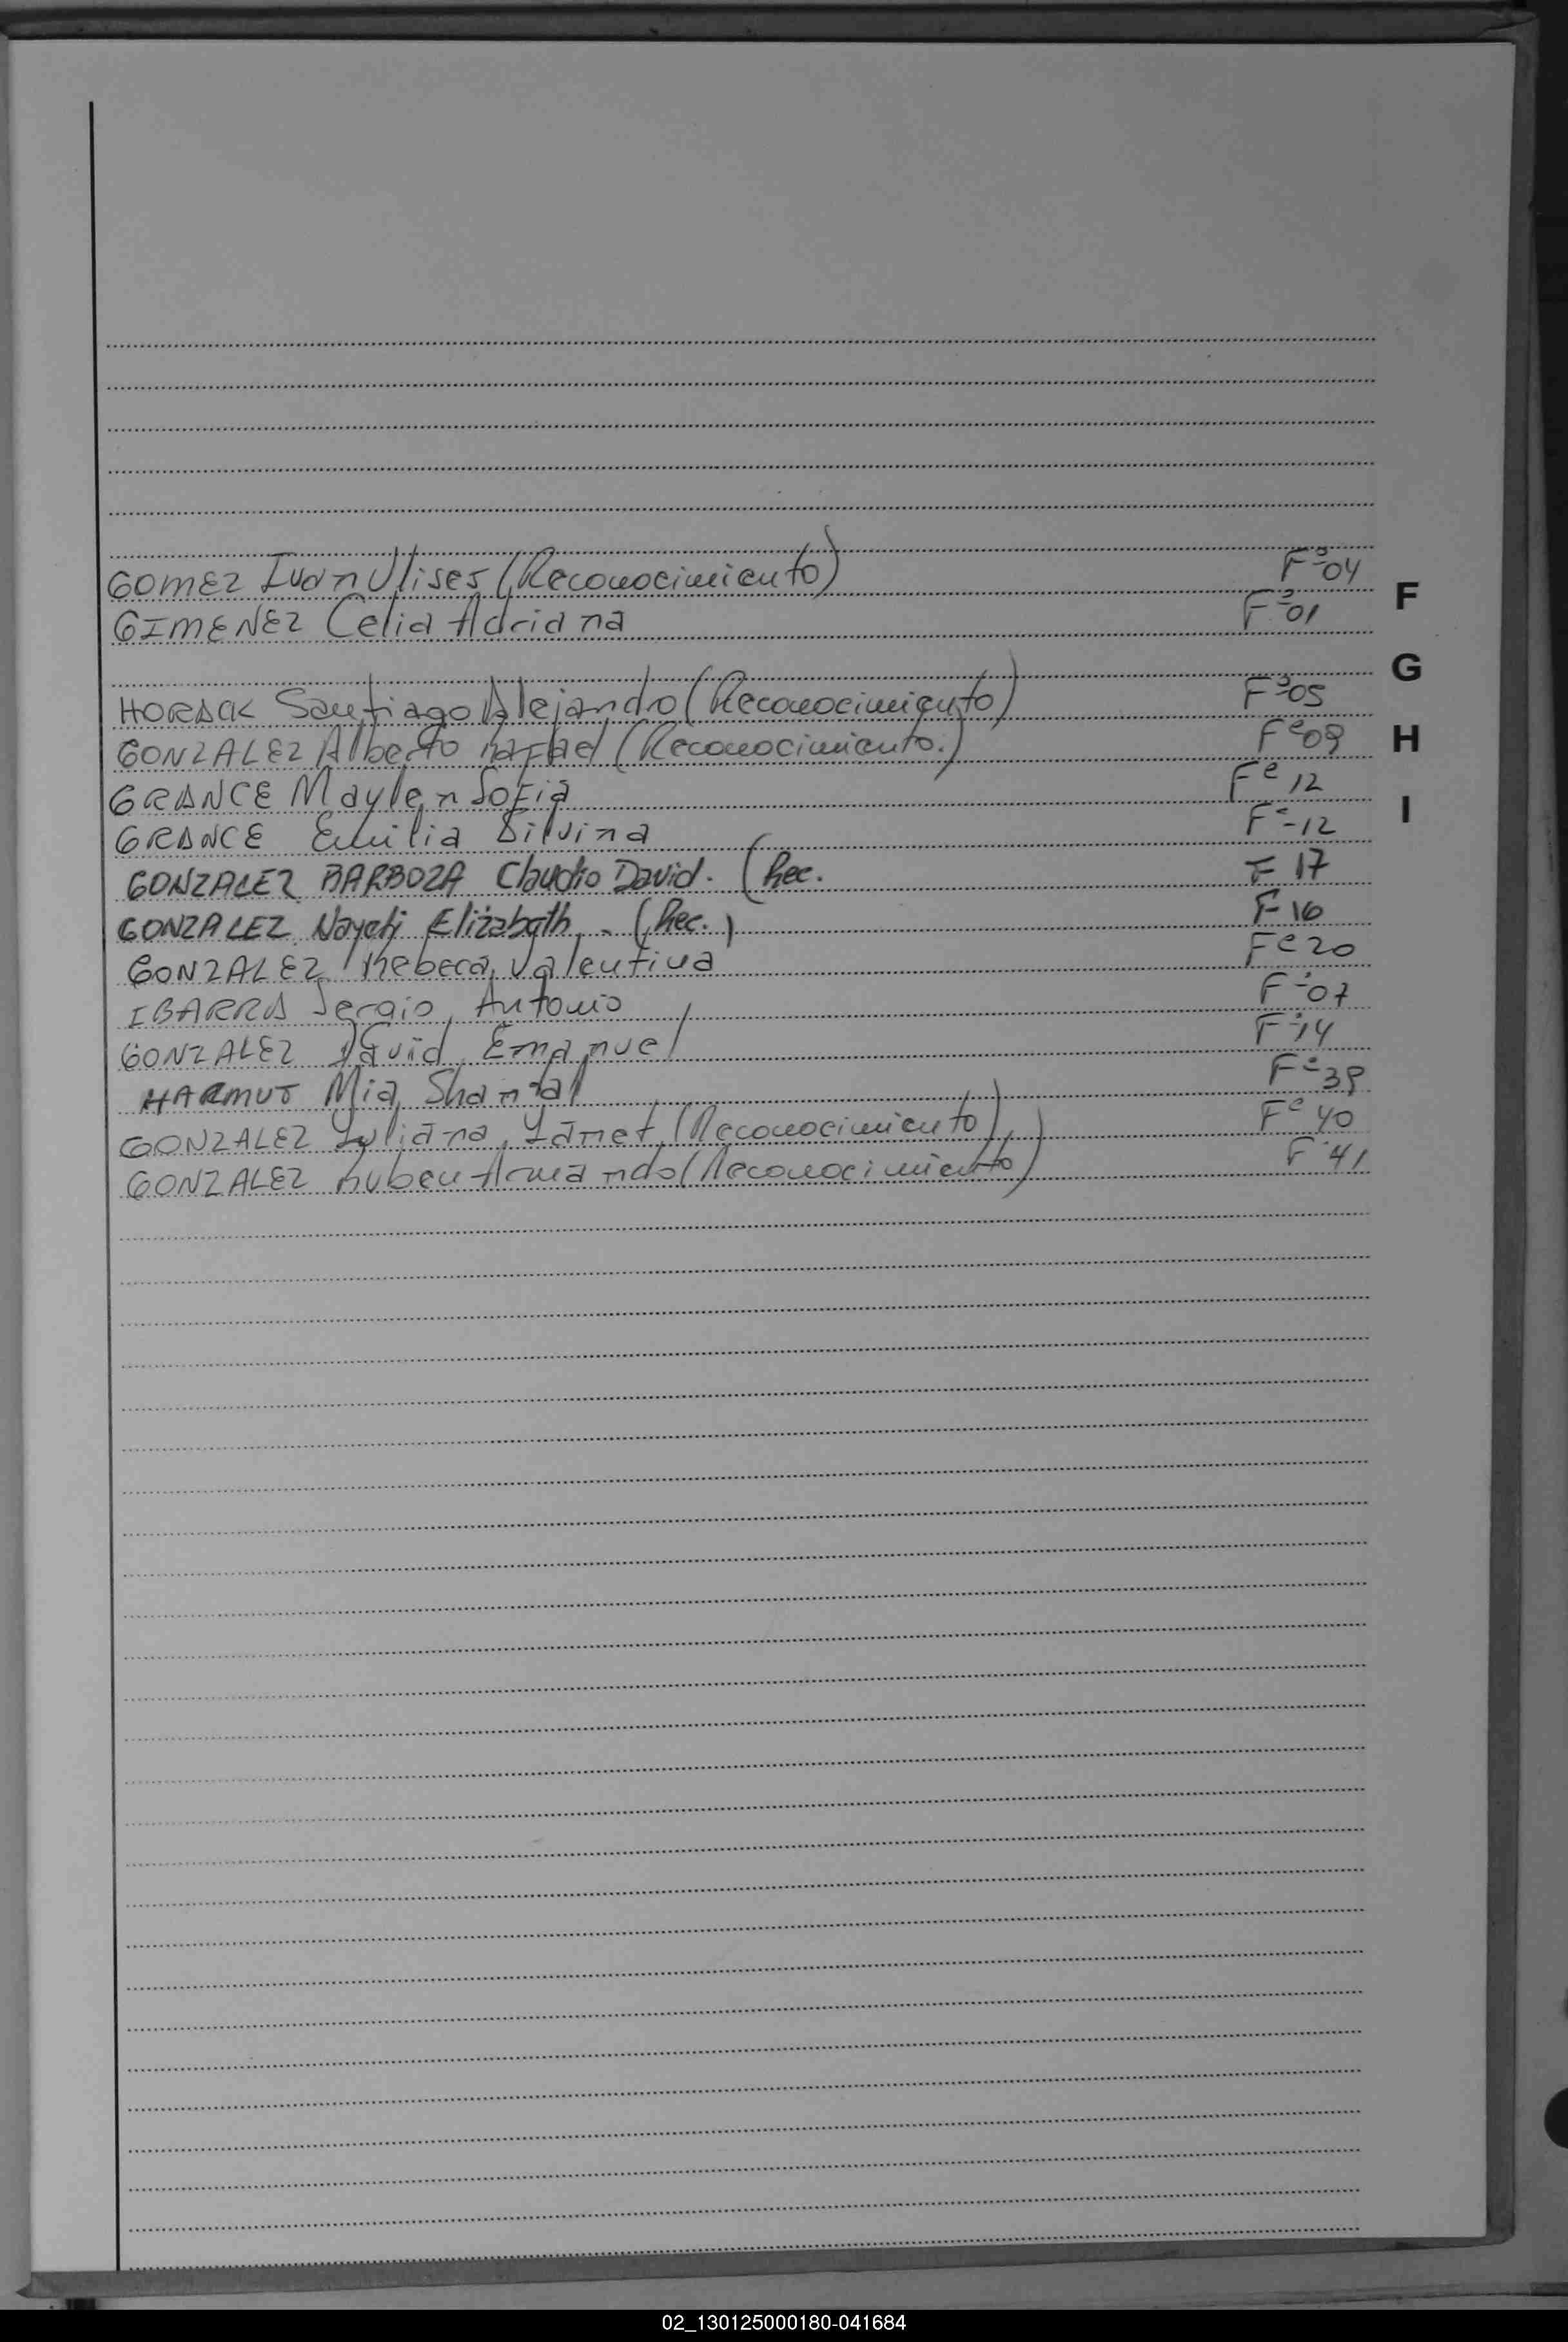 GOMEZ Ivan Ulises (Reconocimiento) Fº04
GIMENEZ Celia Adriana Fº01
F
G
HORACK Santiago Alejandro (Reconocimiento) Fº05
GONZALEZ Alberto Rafael (Reconocimiento.) Fº09
H
GRANCE Maylen Sofia Fº12
GRANCE Emilia Silvina Fº12
I
GONZALEZ BARBOZA Claudio David. (Rec. F 17
GONZALEZ Nayeli Elizabeth. - (Rec.) F 16
GONZALEZ Rebeca Valentina Fº20
IBARRA Sergio Antonio Fº07
GONZALEZ David Emanuel Fº14
HARMUT Mia Shantal Fº39
GONZALEZ Yuliana Yanet (Reconocimiento) Fº40
GONZALEZ Ruben Armando (Reconocimiento) Fº41
02_130125000180-041684